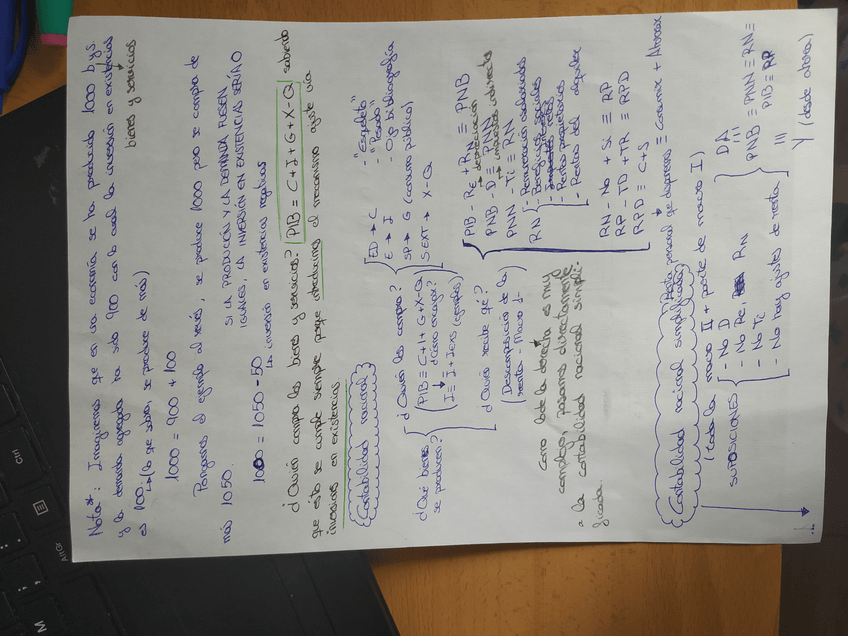 Nota*: Imaginemos que en una economía se ha producido 1000 b y s.
bienes y servicios
y la demanda agregada ha sido 900 con lo cual la inversión en existencias
es 100.
(lo que sobra, se produce de más)
1000 = 900 + 100
Pongamos el ejemplo al revés, se produce 1000 pero se compra de
más 1050.
SI LA PRODUCCIÓN Y LA DEMANDA FUESEN
IGUALES, LA INVERSIÓN EN EXISTENCIAS SERIA 0
1000 = 1050 - 50
La inversión en existencias negativas
¿Quién compra los bienes y servicios? PIB = C+I+G+X-Q sabiendo
que esto se cumple siempre porque introducimos el mecanismo ajuste vía
inversión en existencias
Contabilidad nacional
¿Qué bienes
se producen?
¿Quién los compra?
PIB = C+I+G+X-Q
¿Cómo encaja?
I = I + Iexs (ejemplos)
ED → C
E → I
SP → G (consumo público)
SEXT → X-Q
- "Espeleto"
- "Pesado"
- Ojo bibliografía
¿Quién recibe qué?
Descomposición de la
renta - Macro 1-
PIB - Re + RN ≡ PNB
→ depreciación
PNB - D ≡ PNN
→ impuestos indirectos
PNN - Ti ≡ RN
RN
- Remuneración asalariados
- Beneficios sociales
- Rentas propietarios
- Rentas del alquiler
RN - No + Si ≡ RP
RP - TD + TR ≡ RPD
RPD ≡ C+S
Renta personal que disponemos = Consumir + Ahorrar
Como lo de la derecha es muy
complejo, pasamos directamente
a la contabilidad nacional simpli-
ficada.
Contabilidad nacional simplificada
(toda la macro II + parte de macro I)
SUPOSICIONES
- No D
- No Re, RN
- No Ti
- No hay ajustes de renta
DA
PNB ≡ PNN ≡ RN ≡
PIB ≡ RP
Y (desde ahora)